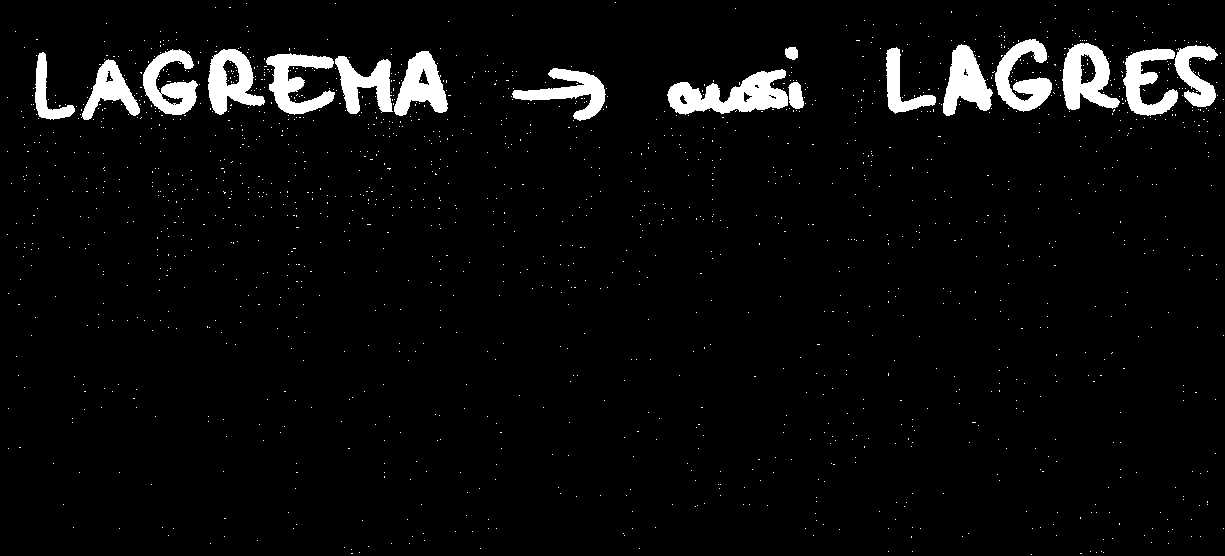 LAGREMA → aussi LAGRES